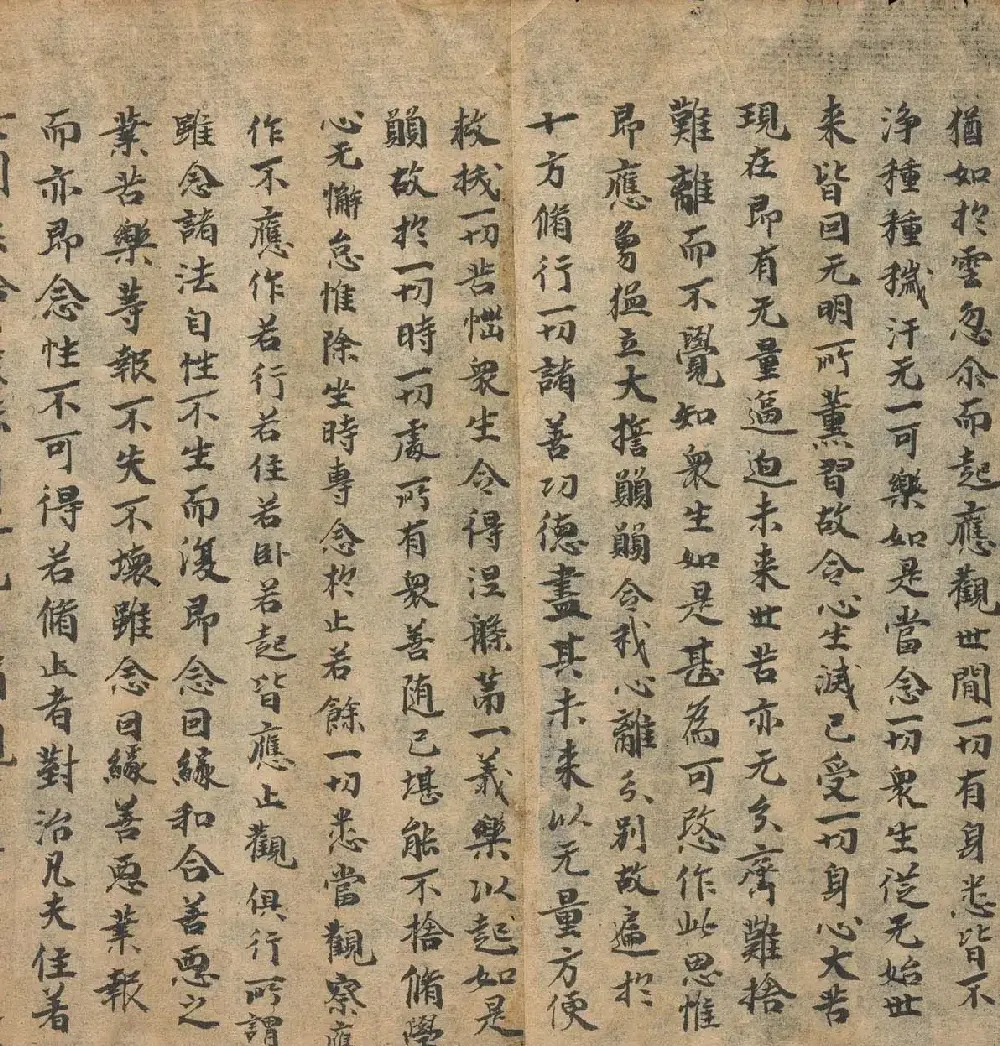 猶如於雲忽尒而起應觀世閒一切有身悉皆不
浄種種穢汙无一可樂如是當念一切衆生從无始世
来皆因无明所薰習故令心生滅已受一切身心大苦
現在即有无量逼迫未来世苦亦无分齊難捨
難離而不覺如衆生如是甚為可愍作此思惟
即應勇猛立大誓願願令我心離分别故遍於
十方脩行一切諸善功德盡其未来以无量方便
救拔一切苦惱衆生令得涅槃苐一義樂以起如是
願故於一切時一切處所有衆善随已堪能不捨脩學
心无懈怠惟除坐時專念於止若餘一切悉當觀察應
作不應作若行若住若卧若起皆應止觀俱行所謂
雖念諸法自性不生而復即念因緣和合善惡之
業苦樂等報不失不壞雖念因緣善惡業報
而亦即念性不可得若脩止者對治凡夫住著